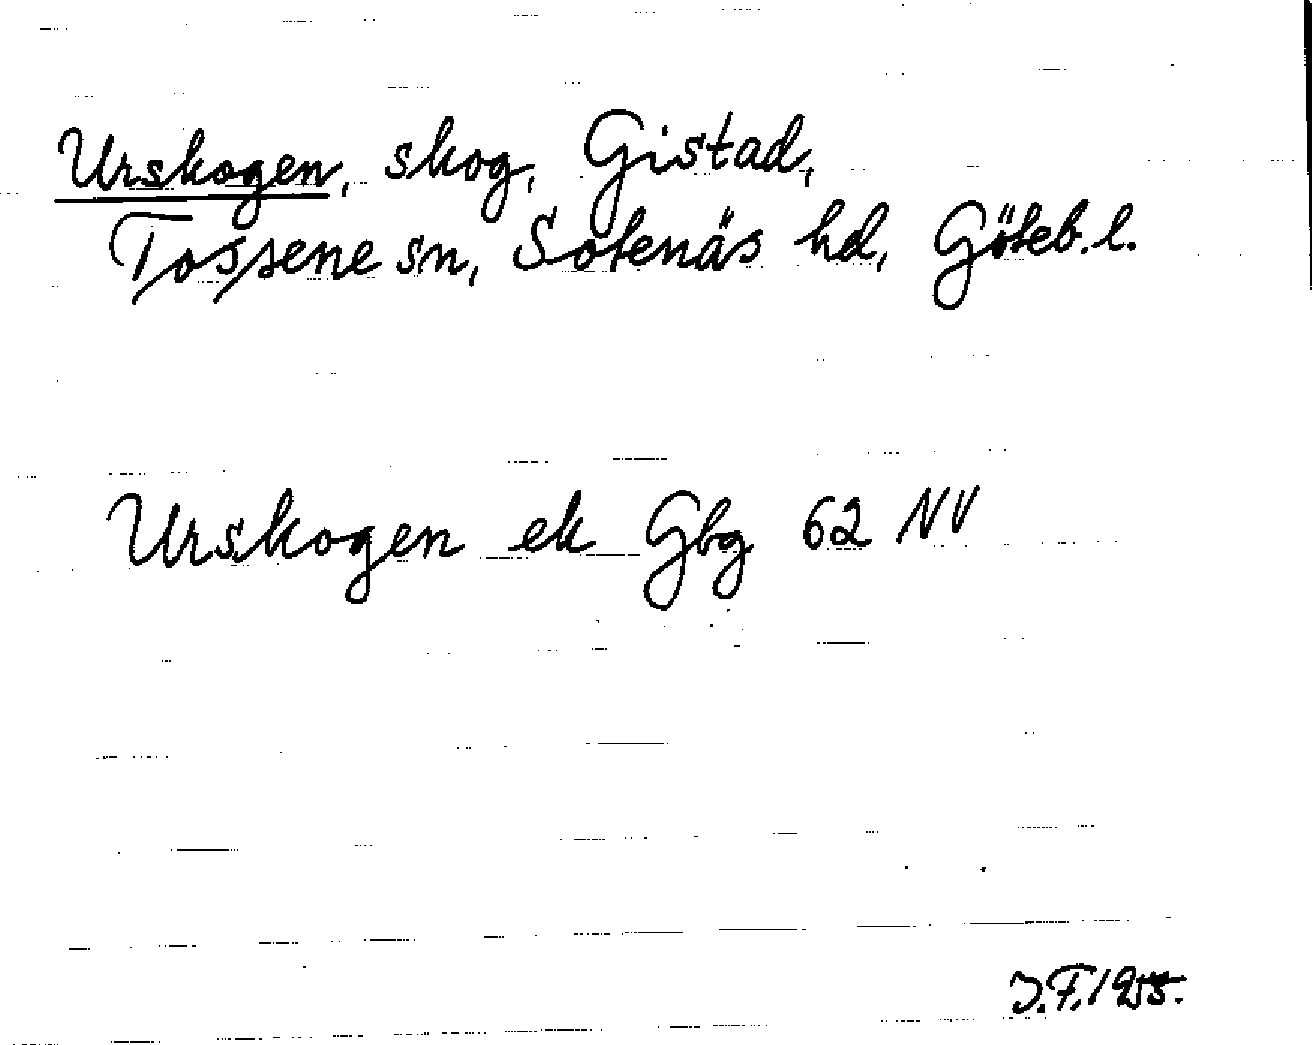 Urskogen, skog, Gistad,
Tossene sn, Sotenäs hd, Göteb. l.
Urskogen ek Gbg 62 NV